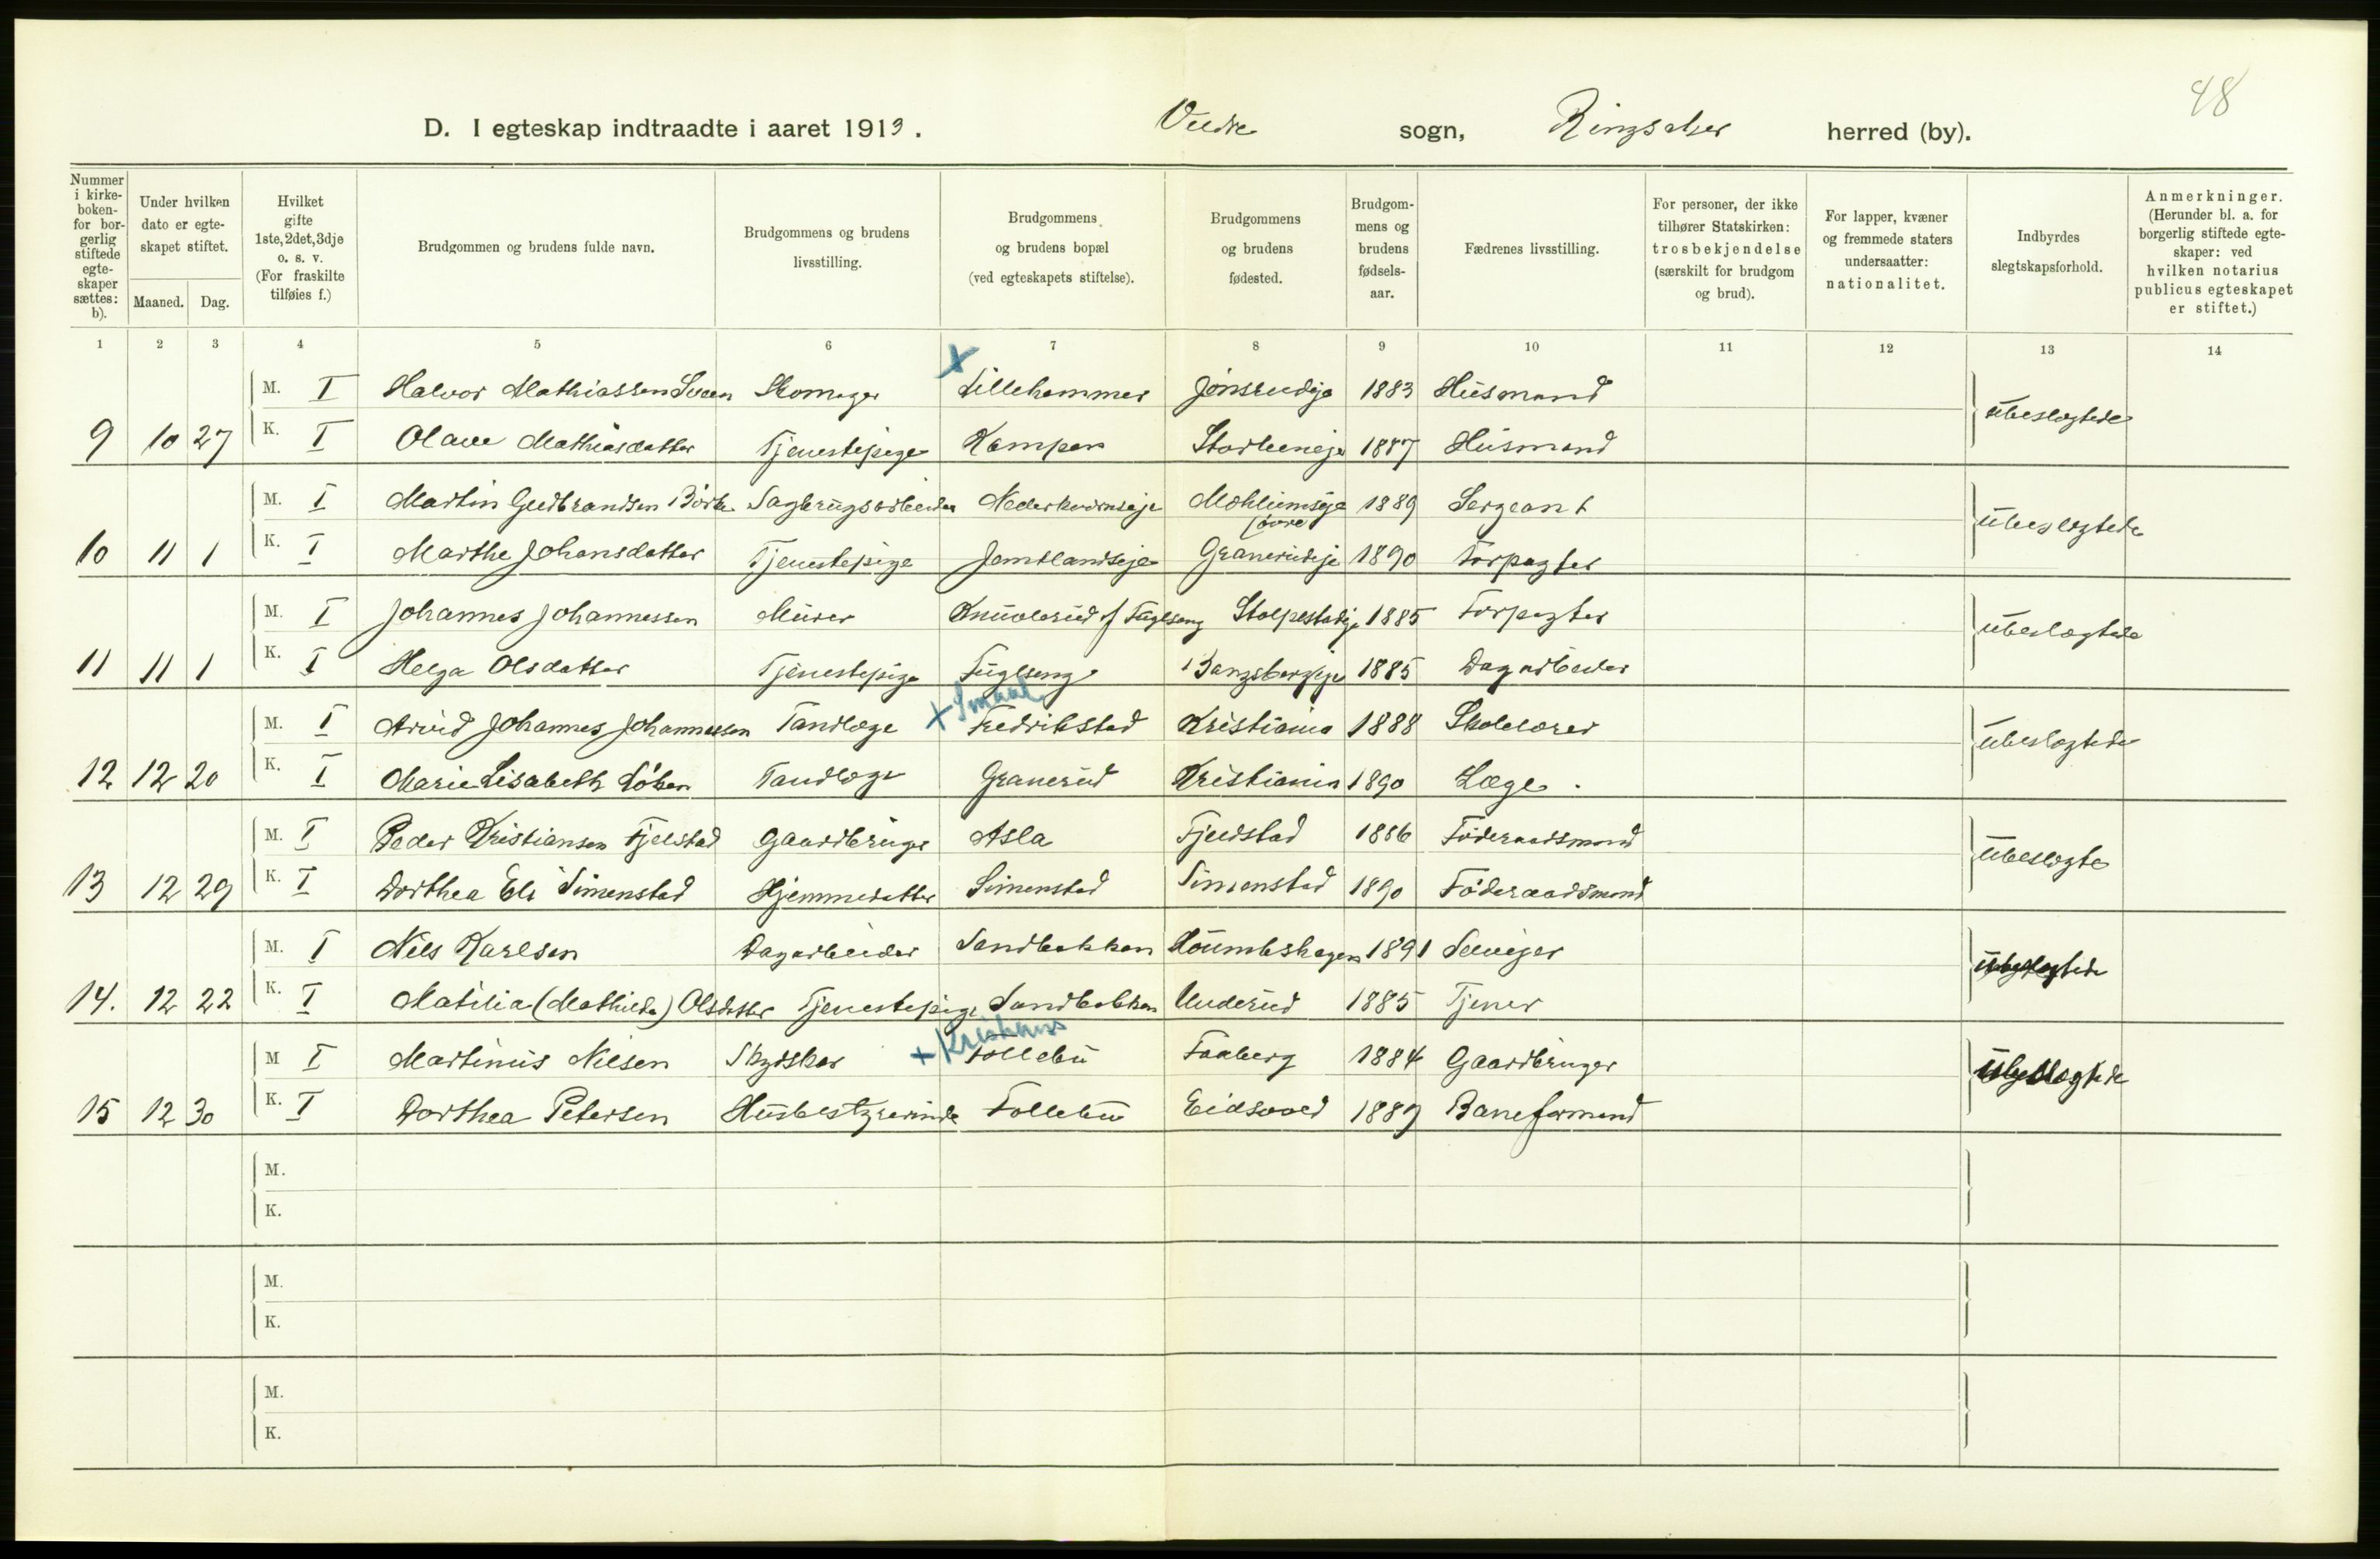 48
D. I egteskap indtraadte i aaret 1913. Veldre sogn, Ringsaker herred (by).
Nummer i kirke-boken- for bor-gerlig stiftede egte-skaper sættes: b).
Under hvilken dato er egte-skapet stiftet.
Maaned. Dag.
Hvilket gifte 1ste, 2det, 3dje o. s. v. (For fraskilte tilføies f.)
Brudgommen og brudens fulde navn.
Brudgommens og brudens livsstilling.
Brudgommens og brudens bopæl (ved egteskapets stiftelse).
Brudgommens og brudens fødested.
Brudgom-mens og brudens fødsels-aar.
Fædrenes livsstilling.
For personer, der ikke tilhører Statskirken: trosbekjendelse (særskilt for brudgom og brud).
For lapper, kvæner og fremmede staters undersaatter: nationalitet.
Indbyrdes slegtskapsforhold.
Anmerkninger. (Herunder bl. a. for borgerlig stiftede egte-skaper: ved hvilken notarius publicus egteskapet er stiftet.)
1 2 3 4 5 6 7 8 9 10 11 12 13 14
M. I Halvor Mathiassen Sveen Skomager X Lillehammer 1883 Husmand ubeslegtede
9 10 27 K. I Olave Mathiasdatter Tjenestepige Kampen 1887 Husmand
M. I Martin Gudbrandsen Børke Sagbrugsarbeider Nederkvernseje 1889 Sergeant ubeslegtede
øvre
10 11 1 K. I Marthe Johansdatter Tjenestepige Jemtlandseje Granerudeje 1890 Forpagter
M. I Johannes Johannessen Murer Knuvlerud f Fuglseng Stolpestadeje 1885 Forpagter ubeslægtede
11 11 1 K. I Helga Olsdatter Tjenestepige Fuglseng Bangsbergeje 1885 Dagarbeider
Smaal.
M. I Arvid Johannes Johannessen Tandlæge X Fredrikstad Kristiania 1888 Skolelærer ubeslegtede
12 12 20 K. I Marie Lisabeth Løken Tandlæge Granerud Kristiania 1890 Læge.
M. I Peder Kristiansen Fjelstad Gaardbruger Asla Fjeldstad 1886 Føderaadsmand ubeslegte
13 12 29 K. I Dorthea Eli Simenstad Hjemmedatter Simenstad Simenstad 1890 Føderaadsmand
M. I Nils Karlsen Dagarbeider Sandbakken 1891 Selvejer ubeslegtede
14. 12 22 K. I Matilia (Mathilde) Olsdatter Tjenestepige Sandbakken 1885 Tjener
+ Kristians
M I Martinus Nilsen Skydskar Follebu Faaberg 1884 Gaardbruger ubeslægtede
15 12 30 K. I Dorthea Petersen Husbestyrerinde Follebu Eidsvold 1889 Baneformand
M.
K.
M.
K.
M.
K.